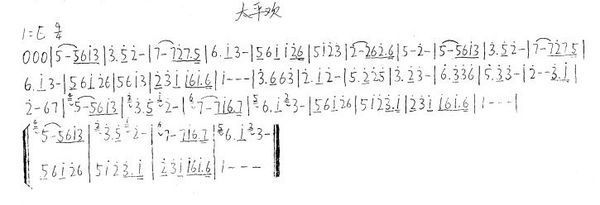 太平欢
1=E 4/4
000|5-5613|3.52-|7-727.5|6.13-|561126|5123|2-262.6|5-2-|5-5613|3.52-|7-727.5|
6.13-|56126|5613|231161.6|1---|3.663|2.12-|5.225|3.23-|6.336|5.33-|2--3.1|
2-67|5-5613|3.52-|7-716.7|6.13-|56126|5123.1|231161.6|1---|
5-5613|3.52-|7-716.7|6.13-
56126|5123.1|231161.6|1---